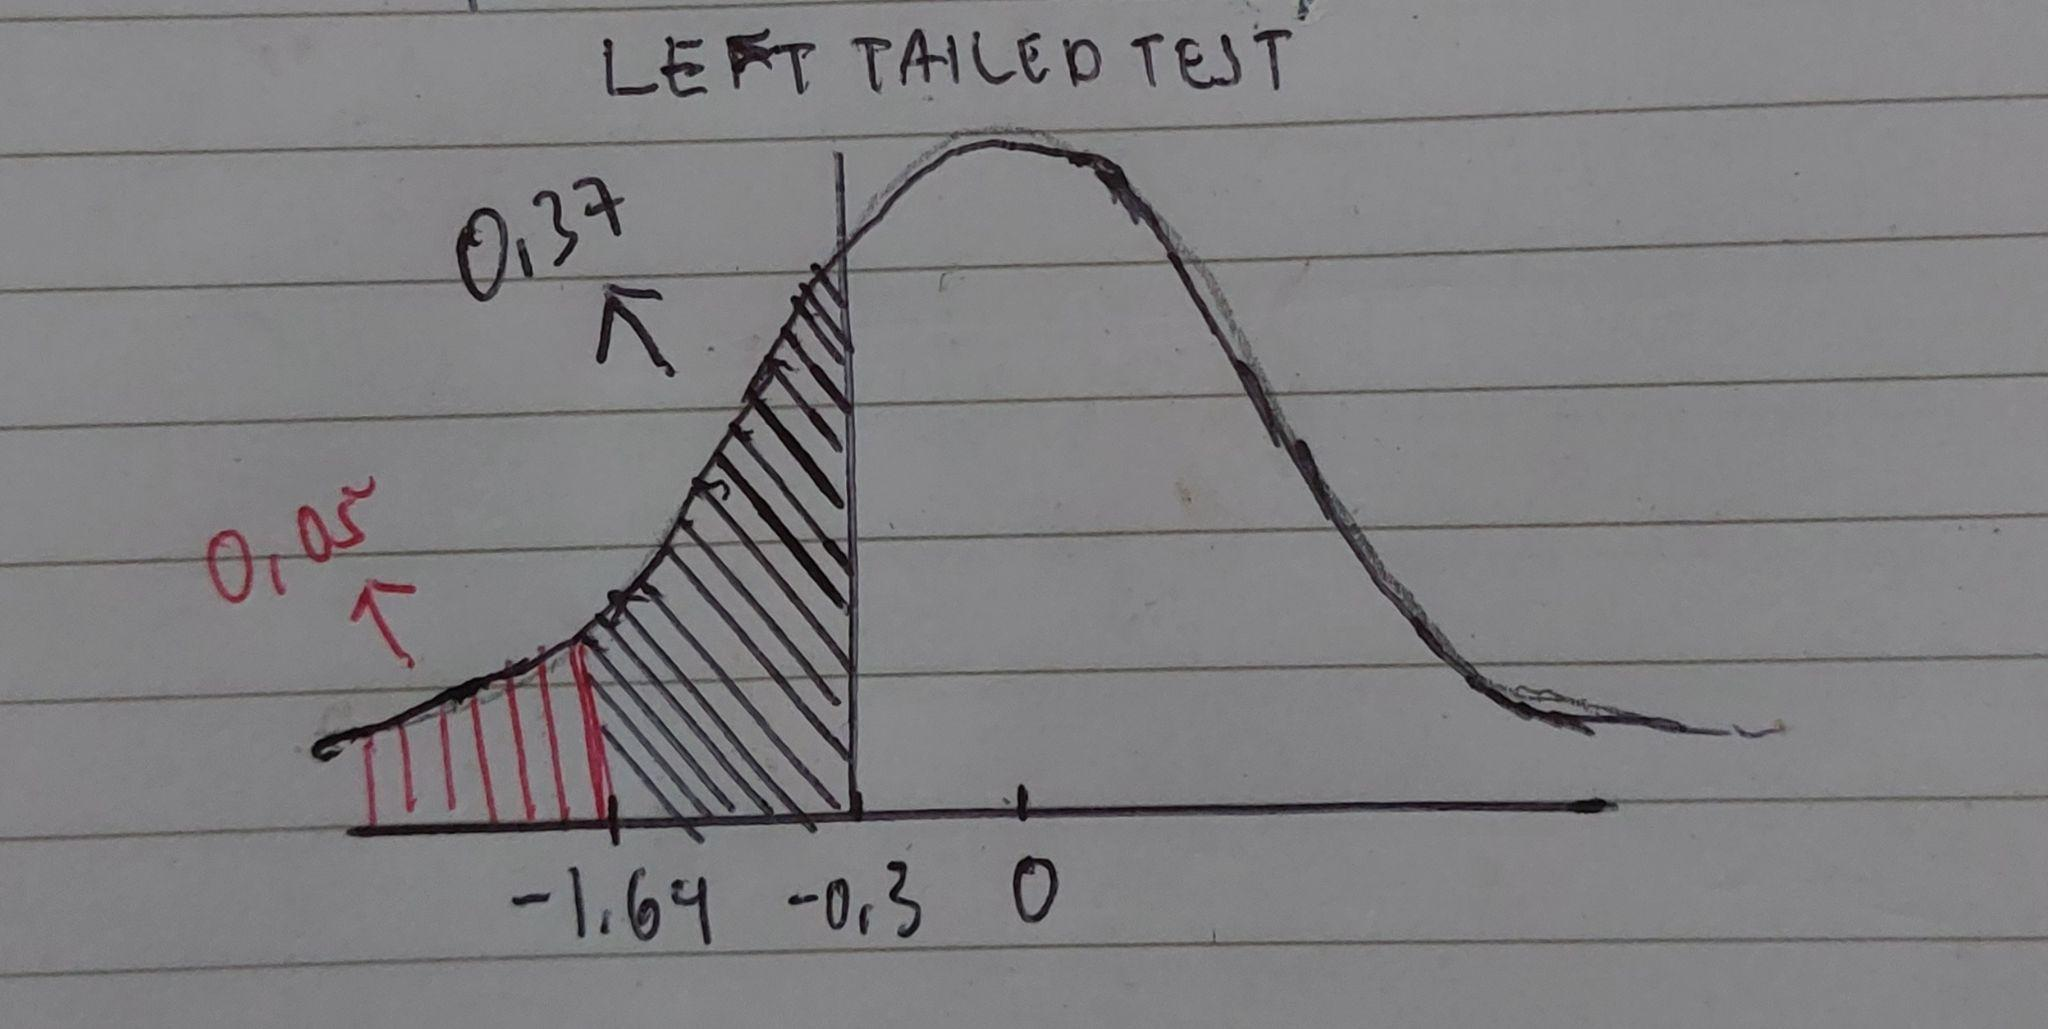 LEFT TAILED TEST
0,37
0,05
-1.64 -0,3 0